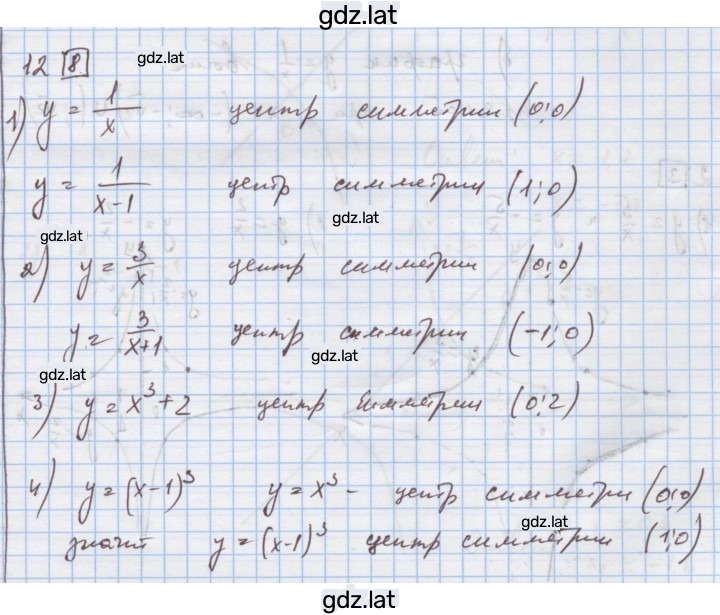 gdz.lat
12 8
gdz.lat
1) y = 1/x центр симметрии (0;0)
y = 1/(x-1) центр симметрии (1;0)
gdz.lat
gdz.lat
2) y = 3/x центр симметрии (0;0)
y = 3/(x+1) центр симметрии (-1;0)
gdz.lat
gdz.lat
3) y = x³+2 центр симметрии (0;2)
4) y = (x-1)³ y = x³ - центр симметрии (0;0)
gdz.lat
значит y = (x-1)³ центр симметрии (1;0)
gdz.lat